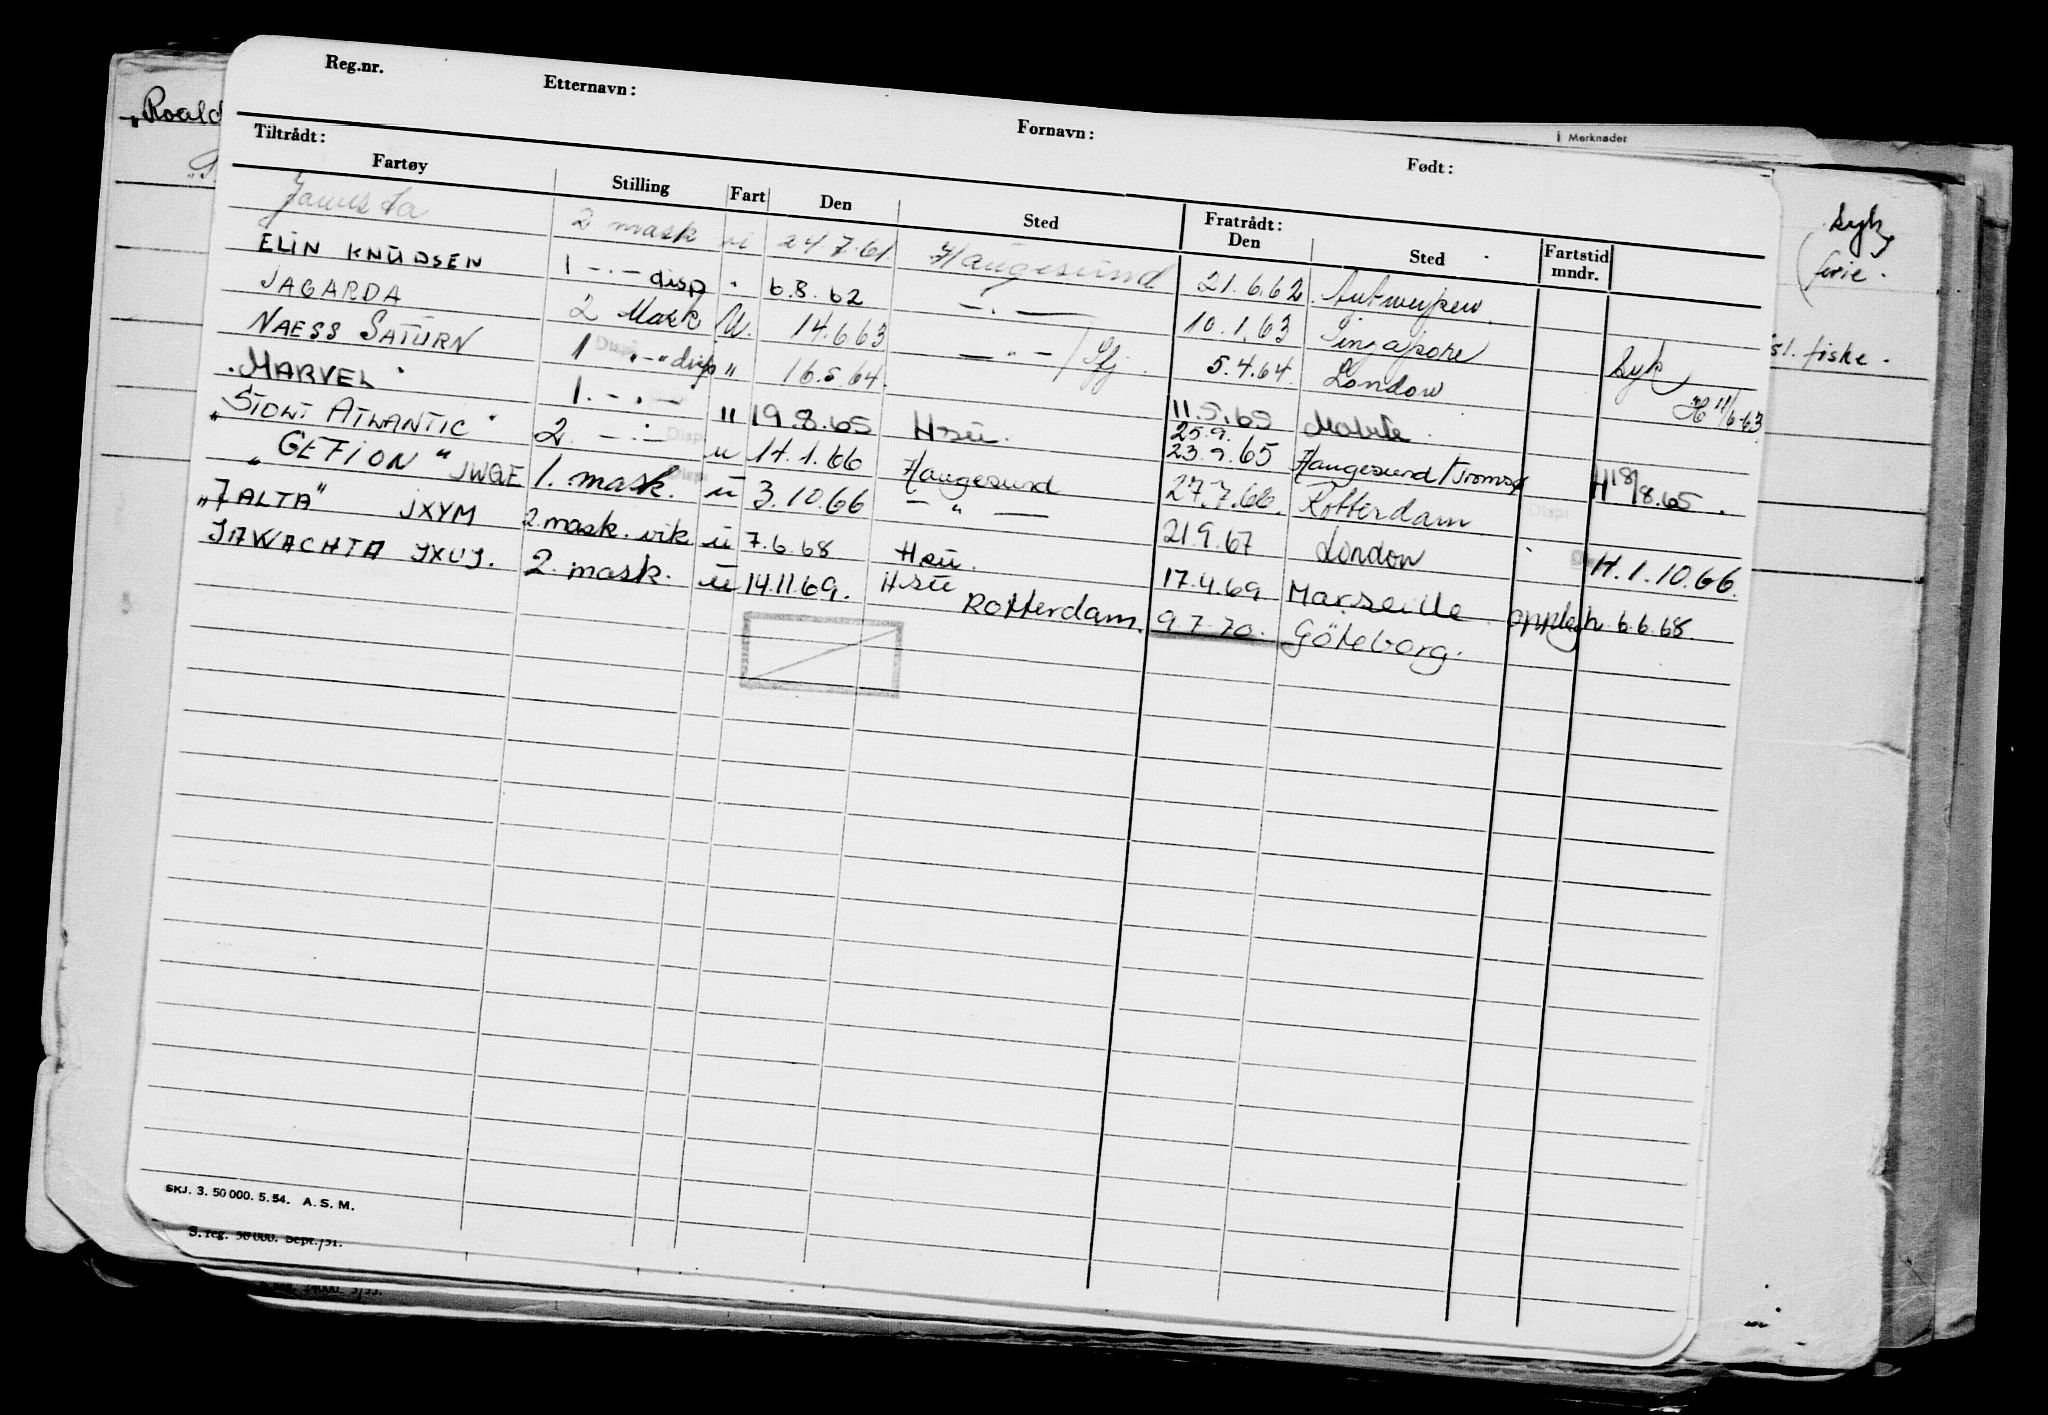 Reg.nr. Etternavn: Fornavn: Født:
Merknader
„Roald
Tiltrådt: Fratrådt:
Fartøy Stilling Fart Den Sted Den Sted Fartstid mndr.
2 mask u 24.7.61 Haugesund 21.6.62 Antwerpen
ELIN KNUDSEN 1 -.- disp " 6.8.62 -.- 10.1.63 Singapore
JAGARDA 2 Mask U. 14.6.63 - " - / Sfj. 5.4.64 London Syk H 11/6-63
NAESS SATURN 1 " - " disp " 16.5.64 11.5.65 Mobile
"MARVEL" 1. - . - " 19.8.65 Hsu. 25.9. 23.9.65 Haugesund / Tromsø H 18/8.65.
"STOLT ATLANTIC" 2. - . - u 14.1.66 Haugesund 27.7.66. Rotterdam
„GEFION" JWGE 1. mask. u 3.10.66 - " - 21.9.67 London H. 1.10.66.
„JALTA" JXYM 2. mask. vik u 7.6.68 Hsu. 17.4.69 Marseille opplegh 6.6.68
JAWACHTA JXUJ. 2. mask. u 14.11.69. Hsu Rotterdam. 9.7.70. Göteborg.
Syk
ferie.
sl. fiske.
SKJ. 3. 50 000. 5. 54. A. S. M.
S. reg. 50 000. Sept./51.
24000. 3/53.